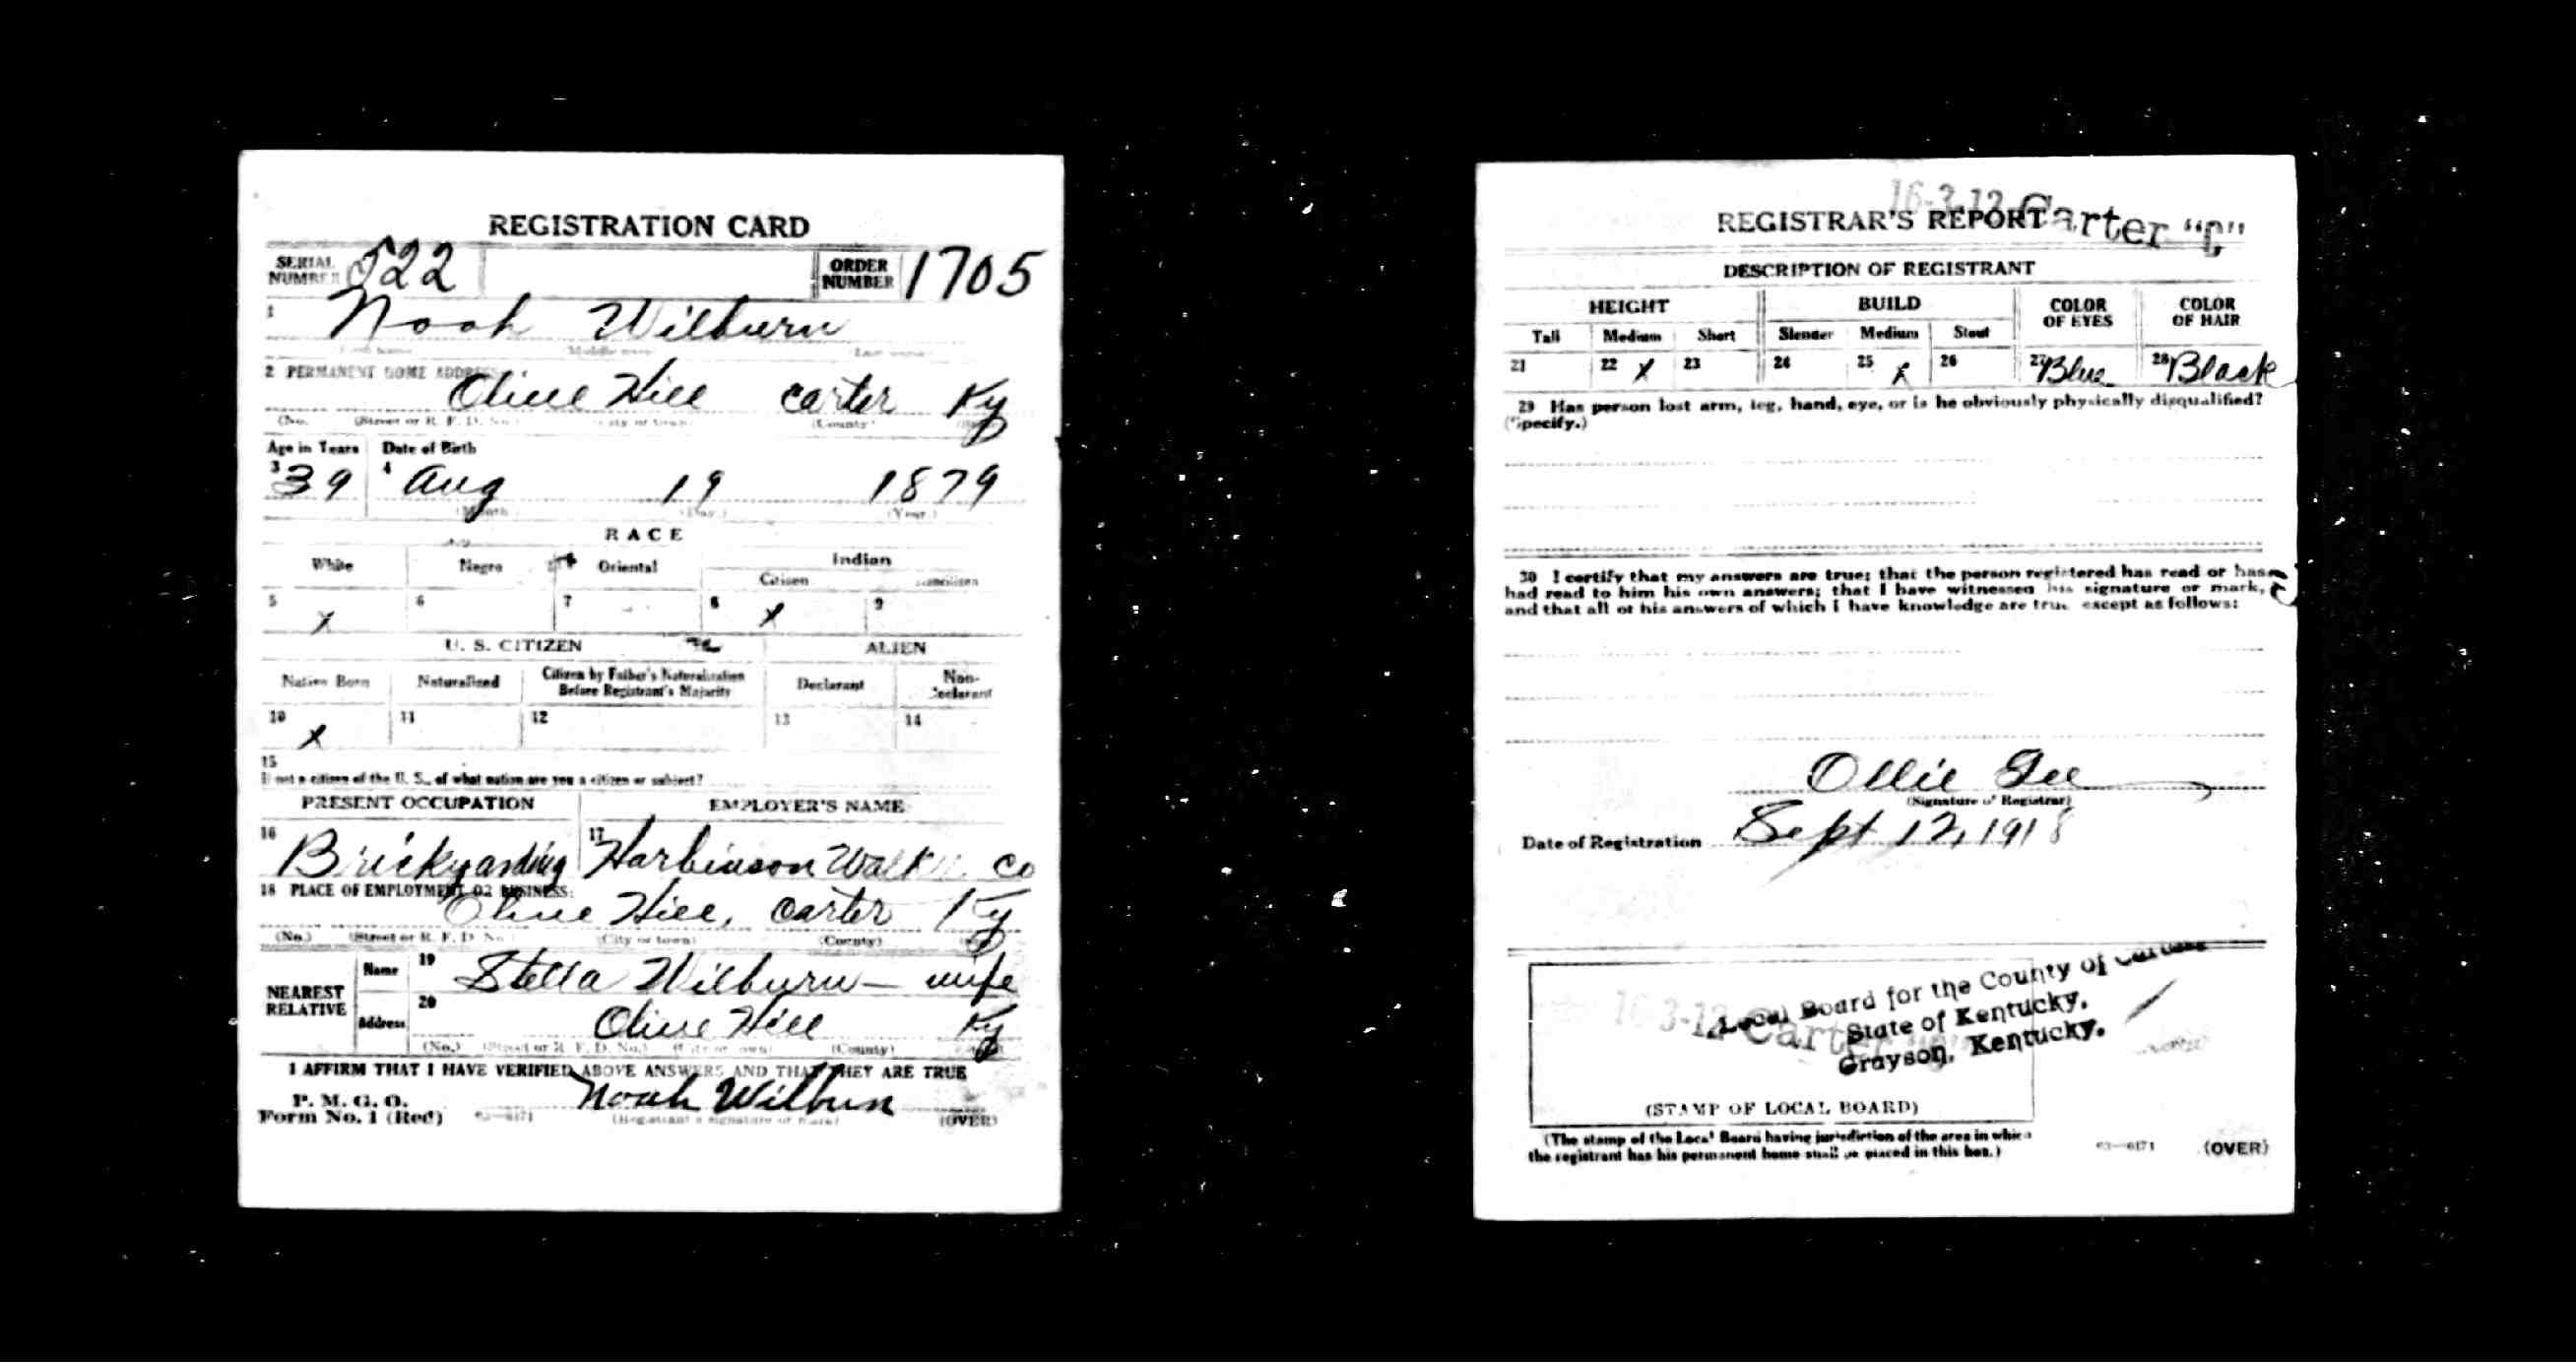 REGISTRATION CARD
SERIAL NUMBER 522 ORDER NUMBER 1705
1 Noah Wilburn
2 PERMANENT HOME ADDRESS:
Olive Hill Carter Ky
(No. (Street or R. F. D. No.) (City or town) (County)
Age in Years Date of Birth
3 39 4 Aug 19 1879
(Month) (Day.) (Year.)
RACE
White Negro Oriental Indian
Citizen Noncitizen
5 X 6 7 8 X 9
U. S. CITIZEN ALIEN
Native Born Naturalized Citizen by Father's Naturalization Before Registrant's Majority Declarant Non-Declarant
10 X 11 12 13 14
15
If not a citizen of the U. S., of what nation are you a citizen or subject?
PRESENT OCCUPATION EMPLOYER'S NAME
16 Brickyarding 17 Harbinson Walk Co
18 PLACE OF EMPLOYMENT OR BUSINESS:
Olive Hill, Carter Ky
(No.) (Street or R. F. D. No.) (City or town) (County)
NEAREST RELATIVE Name 19 Stella Wilburn - wife
Address 20 Olive Hill Ky
(No.) (Street or R. F. D. No.) (City or town) (County)
I AFFIRM THAT I HAVE VERIFIED ABOVE ANSWERS AND THAT THEY ARE TRUE
P. M. G. O.
Form No. 1 (Red) 03-6171 Noah Wilburn
(Registrant's signature or mark) (OVER)
16-3-12 Carter "C"
REGISTRAR'S REPORT
DESCRIPTION OF REGISTRANT
HEIGHT BUILD COLOR OF EYES COLOR OF HAIR
Tall Medium Short Slender Medium Stout
21 22 X 23 24 25 X 26 27 Blue 28 Black
29 Has person lost arm, leg, hand, eye, or is he obviously physically disqualified?
(Specify.)
30 I certify that my answers are true; that the person registered has read or has
had read to him his own answers; that I have witnessed his signature or mark,
and that all of his answers of which I have knowledge are true, except as follows:
Ollie Gee
(Signature of Registrar)
Date of Registration Sept 12, 1918
Local Board for the County of Carter
State of Kentucky,
Grayson, Kentucky.
16-3-12 Carter
(STAMP OF LOCAL BOARD)
(The stamp of the Local Board having jurisdiction of the area in which
the registrant has his permanent home shall be placed in this box.)
03-6171 (OVER)